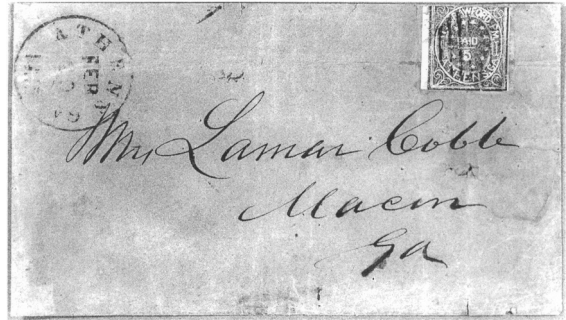 ATHENS
FEB
PAID
5
Mrs Lamar Cobb
Macon
Ga